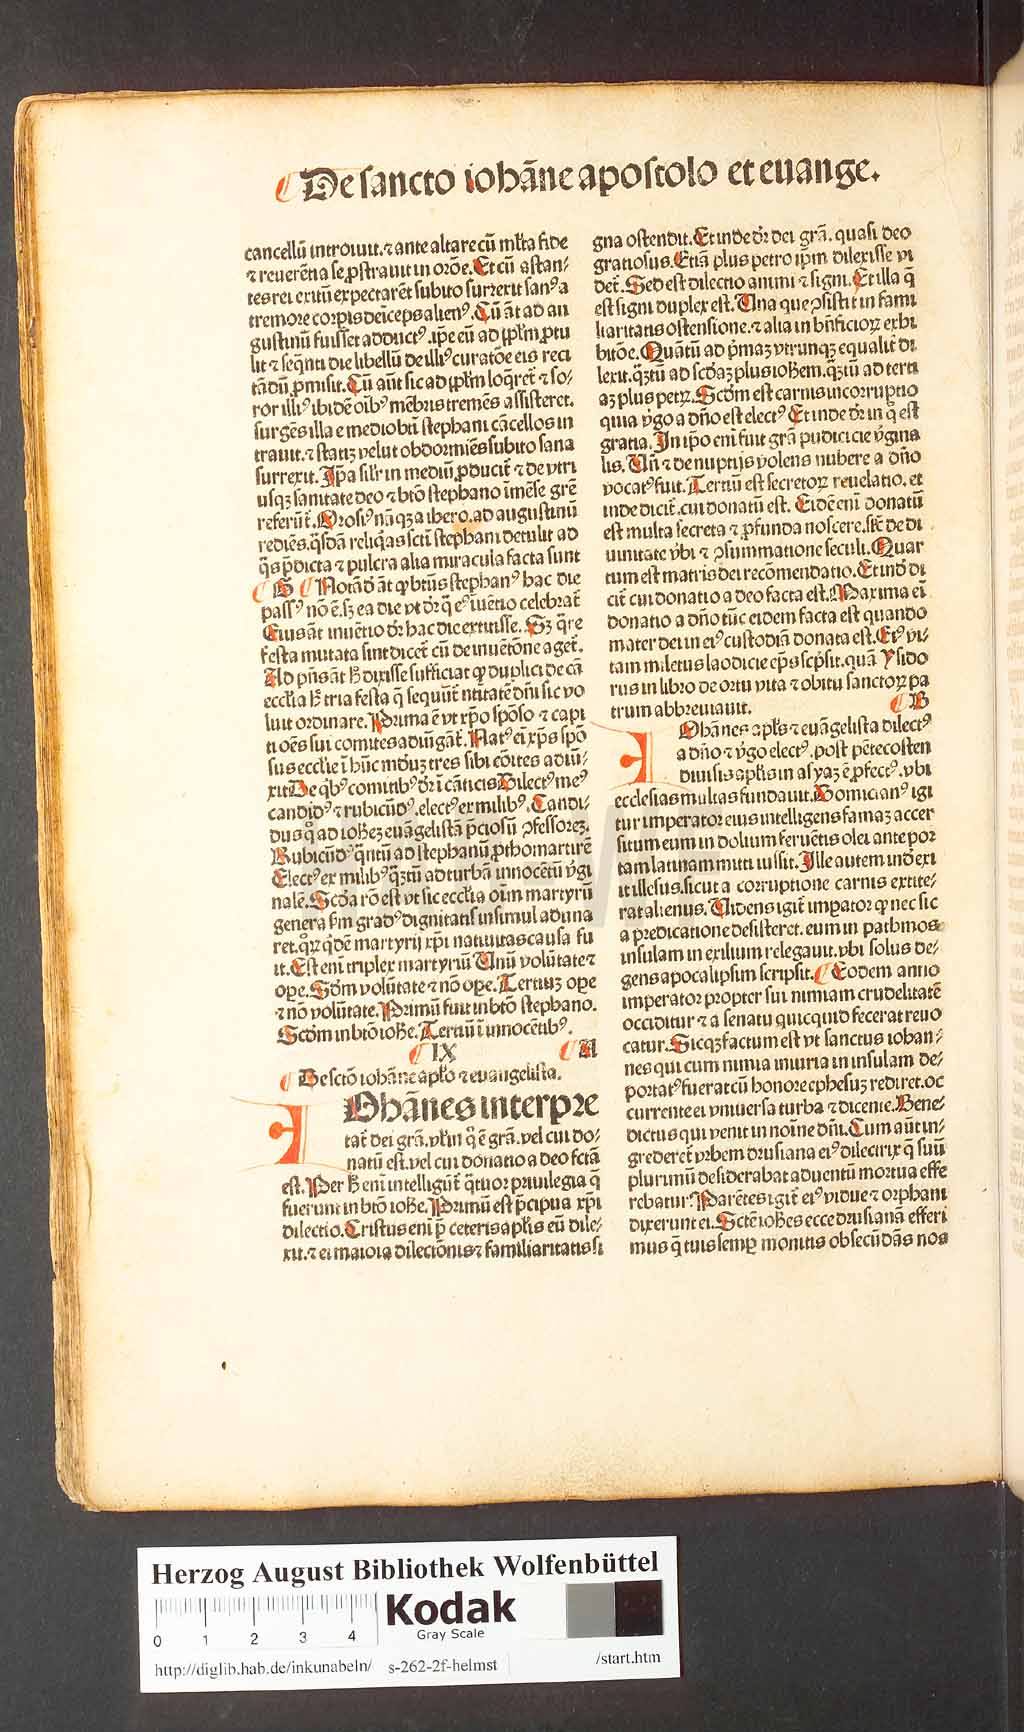 De sancto iohãne apostolo et euange.
cancellũ introiuit. ⁊ ante altare cũ ml̃ta fide
⁊ reuerẽtia se ꝓstrauit in orõe. Et cũ astan-
tes rei exitũ expectarẽt subito surrexit sanꝰ a
tremore corꝑis deĩceps alienꝰ. Cũ aũt ad au
gustinũ fuisset adductꝰ. ip̃e eũ ad pp̃lm ꝓtu
lit ⁊ seq̃nti die libellũ de illiꝰ curatõe eis reci
tãdũ ꝓmisit. Cũ aũt sic ad pp̃lm loq̃ret̃ ⁊ so-
ror illiꝰ ibidẽ oĩbꝰ mẽbris tremẽs assisteret.
surgẽs illa e medio btĩ stephani cãcellos in
trauit. ⁊ statĩ velut obdormiẽs subito sana
surrexit. Ip̃a sil̃r in mediũ ꝓducit̃ ⁊ de vtri
usqꝫ sanitate deo ⁊ btõ stephano ĩmẽse gr̃e
referũt̃. Orosiꝰ nãqꝫ a ibero. ad augustinũ
rediẽs. q̃sdã reliq̃as sctĩ stephani detulit ad
q̃s p̃dicta ⁊ pulcra alia miracula facta sunt
B Notãd̃ aũt ꝙ btũs stephanꝰ hac die
passꝰ nõ ẽ. sꝫ ea die vt dr̃ q̃ eiꝰ ĩuẽtio celebrat̃
Eius aũt inuẽtio dr̃ hac die extitisse. Sꝫ q̃re
festa mutata sint dicet̃ cũ de inuẽtõne aget̃.
Ad p̃ñs aũt h̃ dixisse sufficiat ꝙ duplici de cã
eccl̃ia h̃ tria festa q̃ sequũt̃ ntĩtatẽ dñi sic vo
luit ordinare. Prima ẽ vt xp̃o spõso ⁊ capi
ti oẽs sui comites adiũgãt̃. Natꝰ eĩ xp̃s spõ
sus eccl̃ie ĩ hũc mũdũ tres sibi cõites adiũ-
xit De q̃bꝰ comitibꝰ dr̃ ĩ cãticis Dilectꝰ meꝰ
candidꝰ ⁊ rubicũdꝰ. electꝰ ex milibꝰ. Candi-
dus q̃ ad iohẽꝫ euãgelistã p̃ciosũ ꝯfessoreꝫ.
Rubicũdꝰ q̃ntũ ad stephanũ ꝓthomartirẽ
Electꝰ ex milibꝰ q̃ꝫtũ ad turbã innocẽtũ v̾gi
nalẽ. Scd̃a rõ est vt sic eccl̃ia oĩm martyrũ
genera s̃m gradꝰ dignitatis insimul aduna
ret. q̃ꝝ q̃dẽ martyrij xp̃i natiuitas causa fu
it. Est enĩ triplex martyriũ Vnũ volũtate ⁊
oꝑe. Scd̃m volũtate ⁊ nõ oꝑe. Tertiũ oꝑe
⁊ nõ volũtate. Primũ fuit in btõ stephano.
Scd̃m in btõ iohẽ. Tertiũ ĩ innocẽtibꝰ.
IX A
De sctõ iohãne apl̃o ⁊ euangelista.
IOhãnes interpre
tat̃ dei grã. vl̃ in q̃ ẽ grã. vel cui do-
natũ est. vel cui donatio a deo fctã
est. Per h̃ enĩ intelligũt̃ q̃tuor priuilegia q̃
fuerunt in btõ iohẽ. Primũ est p̃cipua xp̃i
dilectio. Cristus enĩ p̃ ceteris apl̃is eũ dile-
xit. ⁊ ei maiora dilectionis ⁊ familiaritatis si
gna ostendit. Et inde dr̃ dei grã. quasi deo
gratiosus. Etiã plus petro ip̃m dilexisse vi
det̃. Sed est dilectio animi ⁊ signi. Et illa q̃
est signi duplex est. Vna que ꝯsistit in fami
liaritatis ostensione. ⁊ alia in bñficioꝝ exhi
bitõe. Quãtũ ad p̃maꝫ vtrunqꝫ equalit̃ di
lexit. q̃ꝫtũ ad scd̃aꝫ plus iohẽm. q̃ꝫtũ ad terti
aꝫ plus petꝝ. Scd̃m est carnis incorruptio
quia v̾go a dño est electꝰ Et inde dr̃ in q̃ est
gratia. In ip̃o enĩ fuit grã pudicicie v̾gina
lis. Vñ ⁊ de nuptijs volens nubere a dño
vocatꝰ fuit. Tertiũ est secretoꝝ reuelatio. et
inde dicit̃. cui donatũ est. Eidẽ enĩ donatũ
est multa secreta ⁊ ꝓfunda noscere. sic̃ de di
uinitate v̾bi ⁊ ꝯsummatione seculi. Quar
tum est matris dei recõmendatio. Et ind̃ di
cit̃ cui donatio a deo facta est. Maxima eĩ
donatio a dño tũc eidem facta est quando
mater dei in eiꝰ custodiã donata est. Eiꝰ vi-
tam miletus laodicie ep̃s scp̃sit. quã Ysido
rus in libro de ortu vita ⁊ obitu sanctoꝝ pa
trum abbreuiauit. B
IOhãnes apl̃s ⁊ euãgelista dilectꝰ
a dño ⁊ v̾go electꝰ. post pẽtecosten
diuisis apl̃is in asyaꝫ ẽ ꝓfectꝰ. vbi
ecclesias multas fundauit. Domicianꝰ igi
tur imperator eius intelligens famaꝫ accer
situm eum in dolium feruẽtis olei ante por
tam latinam mitti iussit. Ille autem ind̃ exi
it illesus. sicut a corruptione carnis extite-
rat alienus. Videns igit̃ imꝑator ꝙ nec sic
a predicatione desisteret. eum in pathmos
insulam in exilium relegauit. vbi solus de-
gens apocalipsim scripsit. Eodem anno
imperator propter sui nimiam crudelitatẽ
occiditur ⁊ a senatu quicquid fecerat reuo
catur. Sicqꝫ factum est vt sanctus iohan-
nes qui cum nimia iniuria in insulam de-
portatꝰ fuerat cũ honore ephesuꝫ rediret. oc
currente ei vniuersa turba ⁊ dicente. Bene-
dictus qui venit in noĩne dñi. Cum aũt in-
grederet̃ vrbem drusiana eiꝰ dilectrix q̃ suũ
plurimũ desiderabat aduentũ mortua effe
rebatur. Parẽtes igit̃ eiꝰ vidue ⁊ orphani
dixerunt ei. Sctẽ iohẽs ecce drusianã efferi
mus q̃ tuis semꝑ monitis obsecũdãs nos
Herzog August Bibliothek Wolfenbüttel
0 1 2 3 4
Kodak
Gray Scale
http://diglib.hab.de/inkunabeln/ s-262-2f-helmst /start.htm